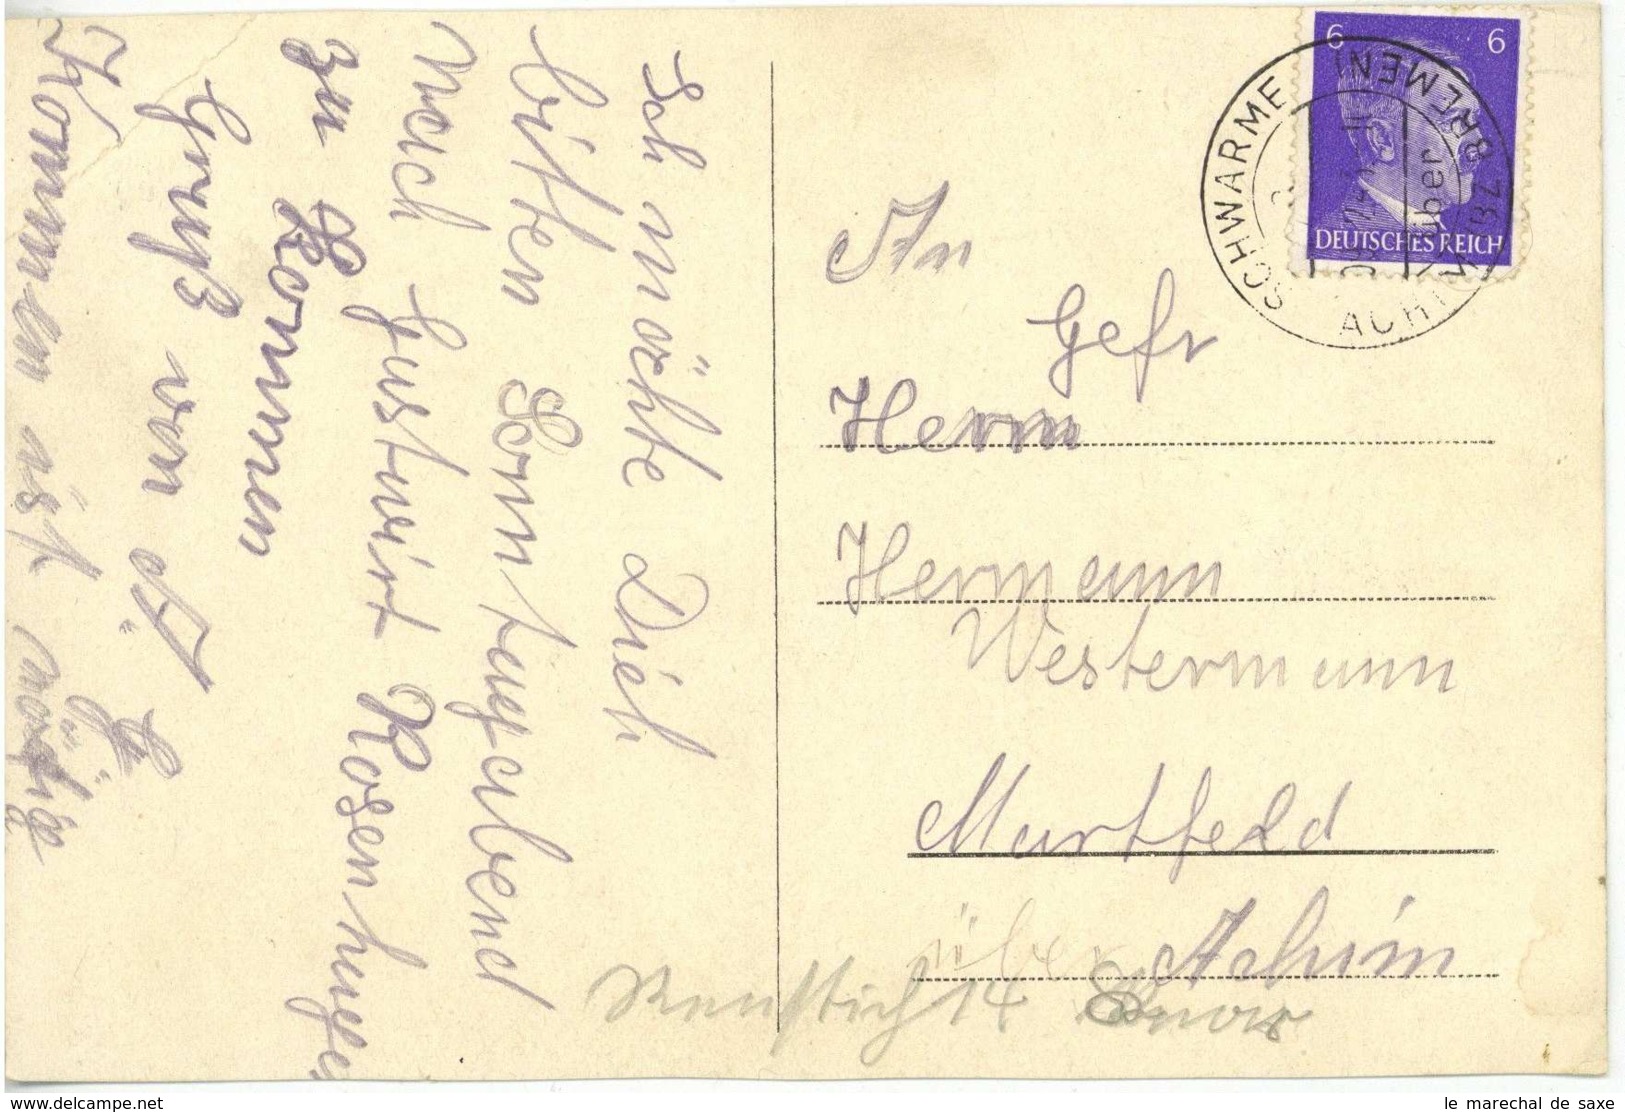 Ich möchte Dich
bitten Sonntagabend
nach Gustwirt Rosenhagen
zu Kommen
Gruß von A
G
Kommen ist nötig
An
Gefr
Herrn
Hermann
Westermann
Martfeld
über Achim
14
6 6
DEUTSCHES REICH
SCHWARME
über
ACHIM (BZ BREMEN)
le marechal de saxe